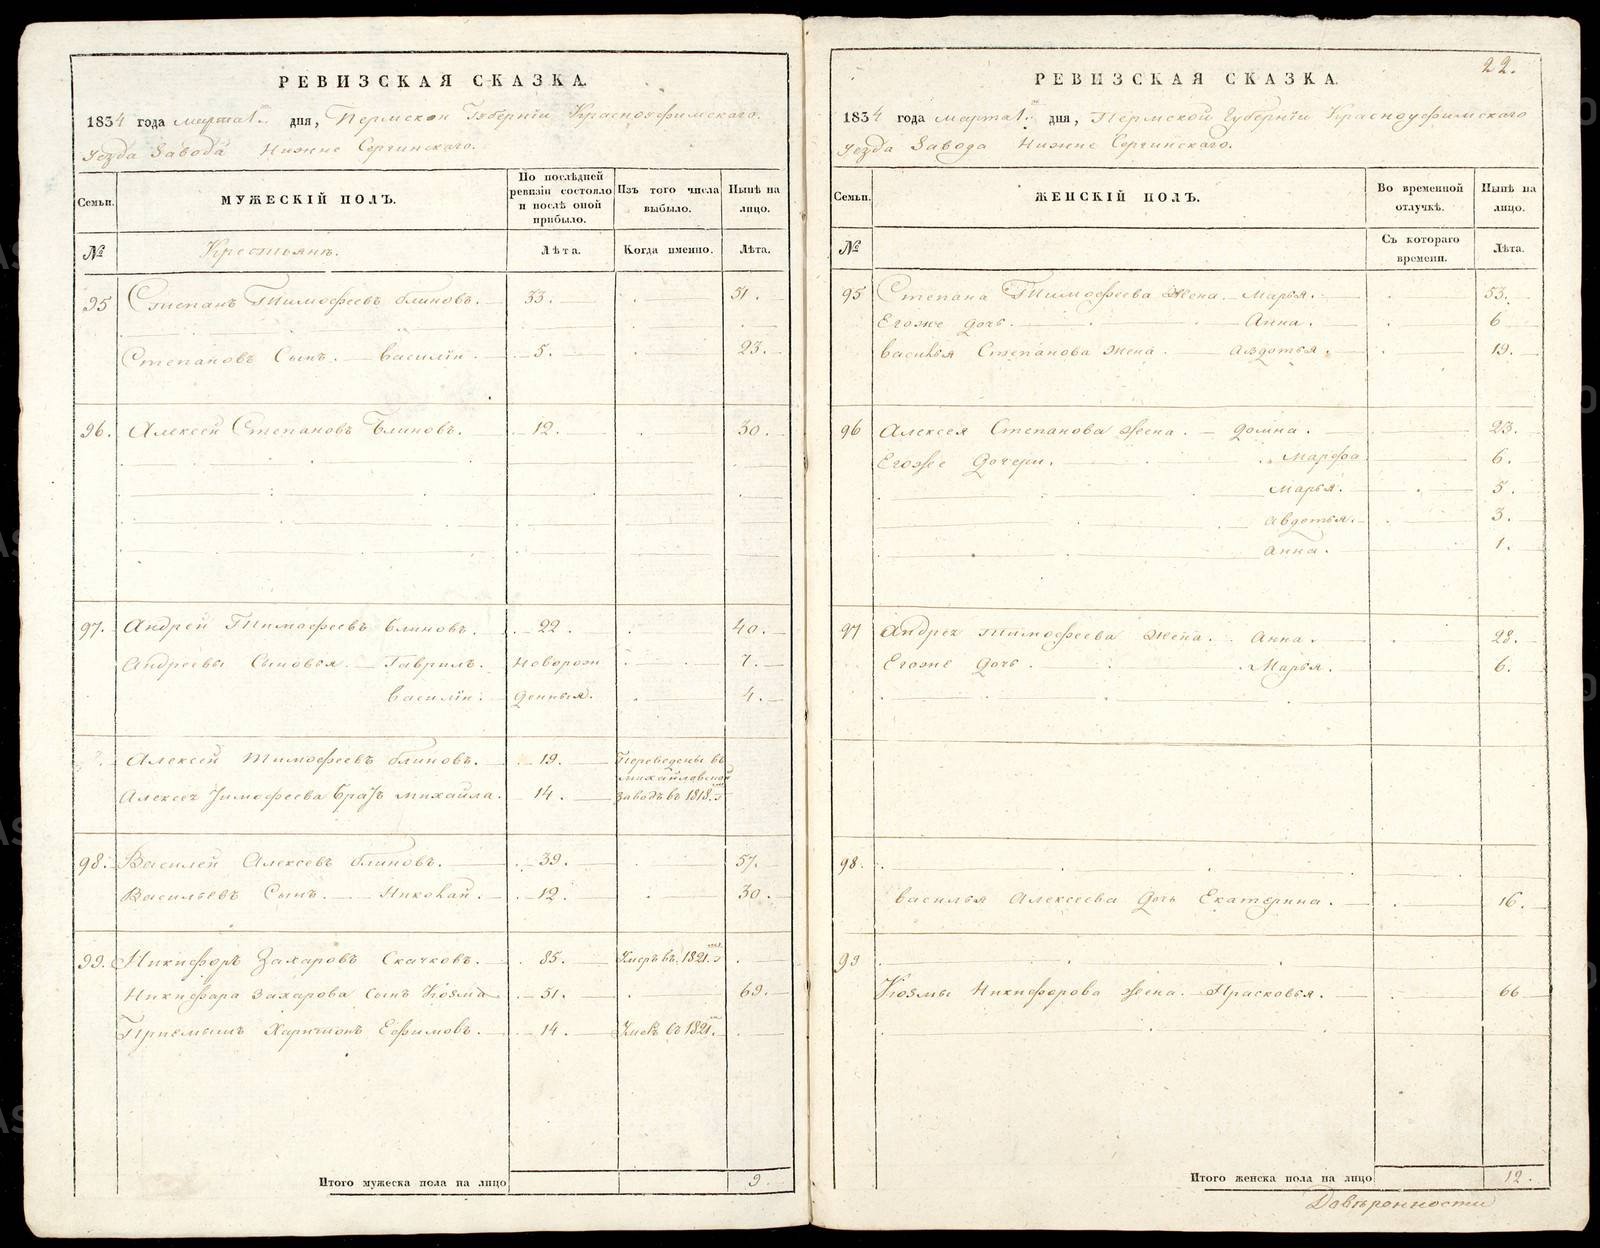 РЕВИЗСКАЯ СКАЗКА.
1834 года марта 1 дня, Пермской Губерніи Красноуфимскаго
уезда Завода Нижне Сергинскаго.
Семьи.
МУЖЕСКІЙ ПОЛЪ.
По послѣдней ревизіи состояло и послѣ оной прибыло.
Изъ того числа выбыло.
Нынѣ на лицо.
№
Крестьянъ.
Лѣта.
Когда именно.
Лѣта.
95 Степанъ Тимофеевъ блиновъ. 33. 51.
Степановъ Сынъ. Василіи. 5. 23.
96. Алексей Степановъ Блиновъ. 12. 30.
97. Андрей Тимофеевъ блиновъ. 22. 40.
Андреевы Сыновья. Гаврилъ. Новорож 7.
Василіи. денныя. 4.
Алексей Тимофеевъ блиновъ. 19. Переведены въ
михайловской
Алексея Тимофеева братъ михаила. 14. заводъ въ 1818.
98. Василей Алексевъ блиновъ. 39. 57.
Васильевъ Сынъ. Николай. 12. 30.
99. Никифоръ Захаровъ Скачковъ. 85. Умеръ въ 1821.
Никифара Захарова Сынъ Козма 51. 69.
Приемышъ Харитонъ Ефимовъ. 14. съ 1821.
Итого мужеска пола на лицо 9
22.
РЕВИЗСКАЯ СКАЗКА.
1834 года марта 1 дня, Пермской Губерніи Красноуфимскаго
уезда Завода Нижне Сергинскаго.
Семьи.
ЖЕНСКІЙ ПОЛЪ.
Во временной отлучкѣ.
Нынѣ на лицо.
№
Съ котораго времени.
Лѣта.
95 Степана Тимофеева жена. Марья. 53.
Егоже дочь. Анна. 6
Василья Степанова жена. Авдотья. 19.
96 Алексея Степанова жена. домна. 23.
Егоже дочери. Марфа 6.
Марья. 5.
авдотья. 3.
анна. 1.
97 Андрея тимофеева жена. Анна. 28.
Егоже дочь. Марья. 6.
98.
Василья Алексеева дочь Екатерина. 16.
99
Козмы Никифорова жена. Прасковья. 66
Итого женска пола на лицо 12.
Давѣренности